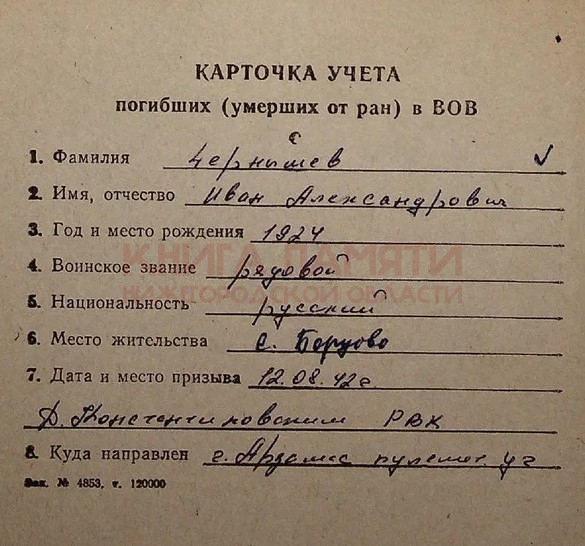 КАРТОЧКА УЧЕТА
погибших (умерших от ран) в ВОВ
с
1. Фамилия Чернышев
2. Имя, отчество Иван Александрович
3. Год и место рождения 1924
КНИГА ПАМЯТИ
4. Воинское звание рядовой
НИЖЕГОРОДСКОЙ ОБЛАСТИ
5. Национальность русский
6. Место жительства с. Борцово
7. Дата и место призыва 12.08.42 г
Д. Константиновским РВК
8. Куда направлен г. Арзамас пулемет. уч
Зак. № 4853, т. 120000